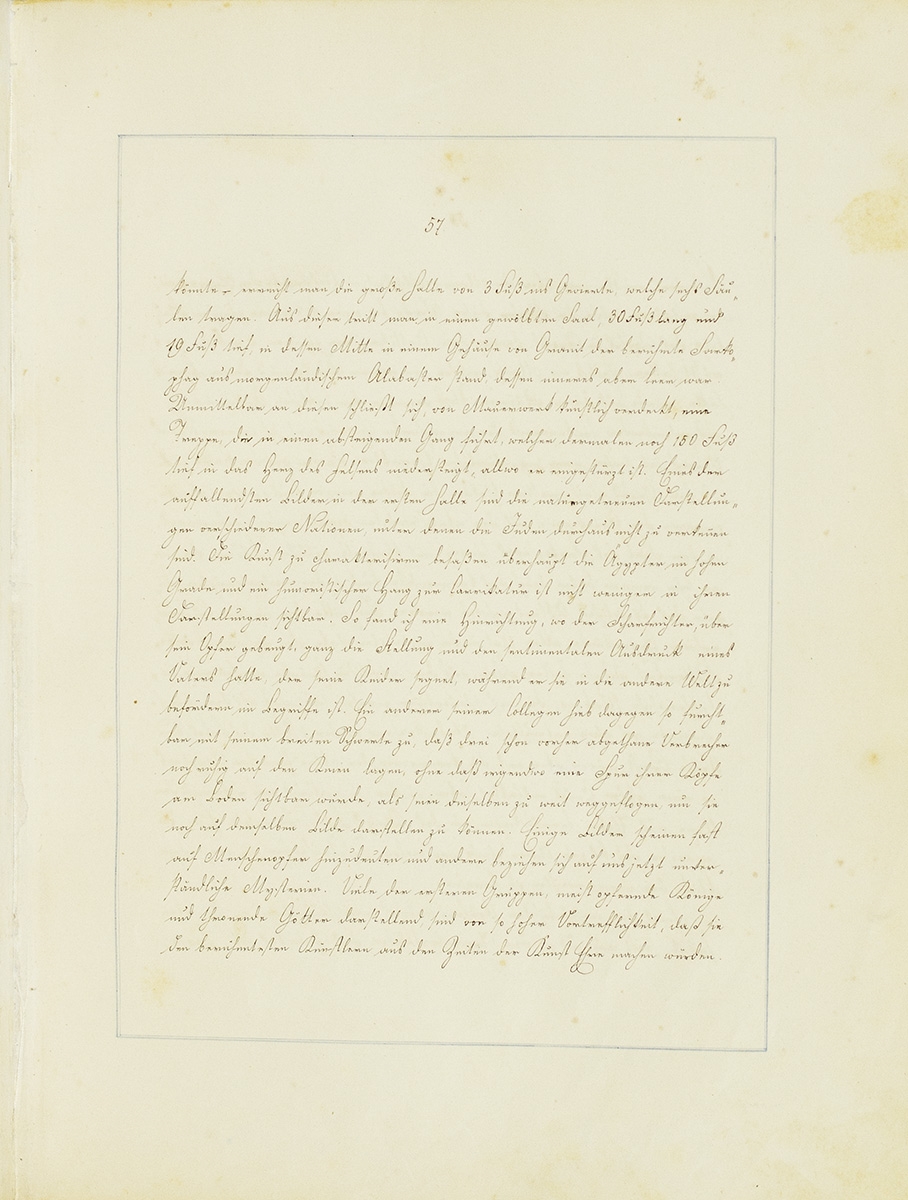 57
könnte – erreicht man die große Halle von 3 Fuß ins Gevierte, welche sechs Säu-
len tragen. Aus dieser tritt man in einen gewölbten Saal, 30 Fuß lang und
19 Fuß tief, in dessen Mitte in einem Gehäuse von Granit der berühmte Sarko-
phag aus morgenländischem Alabaster stand, dessen inneres aber leer war.
Unmittelbar an diesen schließt sich, von Mauerwerk künstlich verdeckt, eine
Treppe, die in einen absteigenden Gang führt, welcher dermalen noch 150 Fuß
tief in das Herz des Felsens niedersteigt, allwo er eingestürzt ist. Eines der
auffallendsten Bilder in der ersten Halle sind die naturgetreuen Darstellun-
gen verschiedener Nationen, unter denen die Juden durchaus nicht zu verkennen
sind. Die Kunst zu charakterisiren besaßen überhaupt die Ägypter im hohen
Grade und ein humoristischer Hang zur Carrikatur ist nicht weniger in ihren
Darstellungen sichtbar. So fand ich eine Hinrichtung, wo der Scharfrichter, über
sein Opfer gebeugt, ganz die Stellung und den sentimentalen Ausdruck eines
Vaters hatte, der seine Kinder segnet, während er sie in die andere Welt zu
befördern im Begriffe ist. Ein anderer seiner Collegen hieb dagegen so furcht-
bar mit seinem breiten Schwerte zu, daß drei schon vorher abgethane Verbrecher
noch ruhig auf den Knien lagen, ohne daß irgendwo eine Spur ihrer Köpfe
am Boden sichtbar wurde, als seien dieselben zu weit weggeflogen, um sie
noch auf demselben Bilde darstellen zu können. Einige Bilder scheinen fast
auf Menschenopfer hinzudeuten und andere beziehen sich auf uns jetzt unver-
ständliche Mysterien. Viele der ersteren Gruppen, meist opfernde Könige
und thronende Götter darstellend, sind von so hoher Vortrefflichkeit, daß sie
den berühmtesten Künstlern aus den Zeiten der Kunst Ehre machen würden.